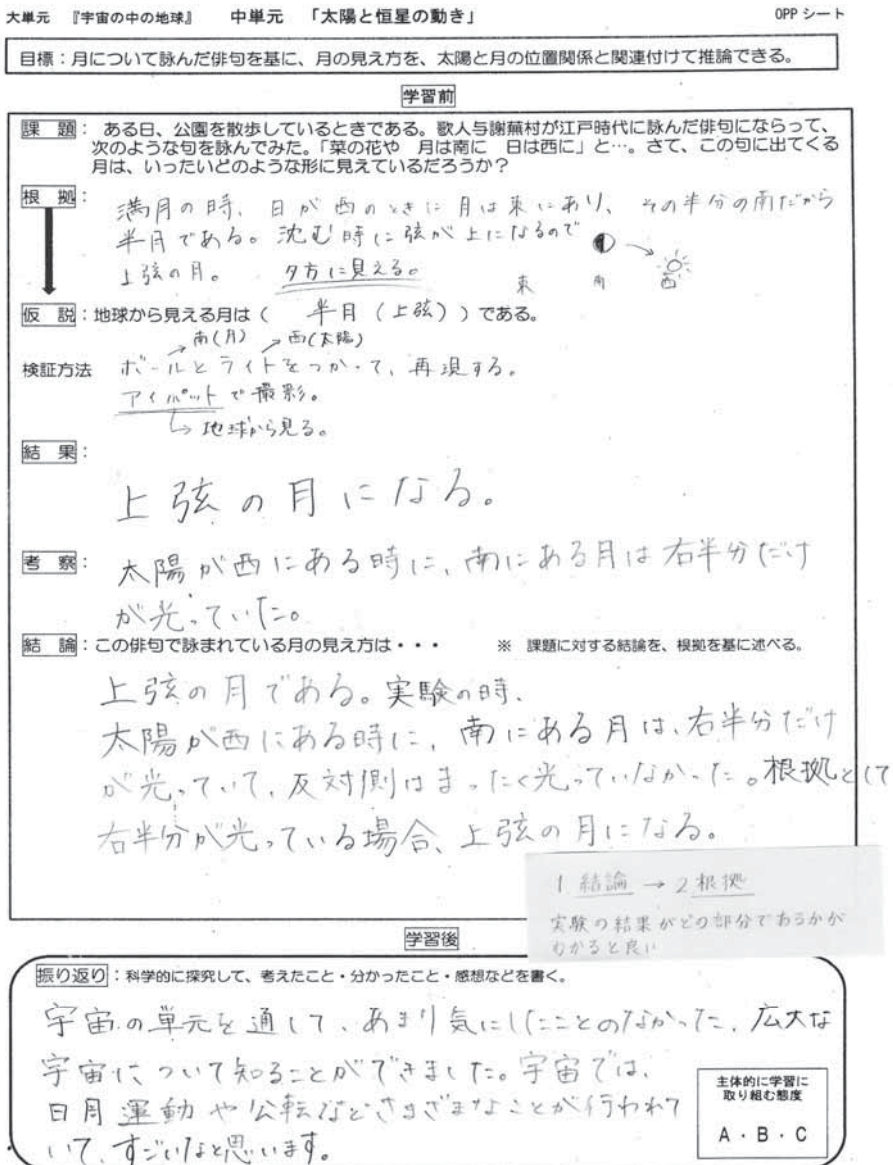 大単元 『宇宙の中の地球』 中単元 「太陽と恒星の動き」 OPP シート
目標：月について詠んだ俳句を基に、月の見え方を、太陽と月の位置関係と関連付けて推論できる。
学習前
課 題： ある日、公園を散歩しているときである。歌人与謝蕪村が江戸時代に詠んだ俳句にならって、
次のような句を詠んでみた。「菜の花や 月は南に 日は西に」と…。さて、この句に出てくる
月は、いったいどのような形に見えているだろうか？
根 拠：
満月の時、日が西のときに月は東にあり、その半分の南だから
半月である。沈む時に弦が上になるので
上弦の月。 夕方に見える。
東 南 西
仮 説：地球から見える月は（ 半月（上弦））である。
南(月) 西(太陽)
検証方法 ボールとライトをつかって、再現する。
アイパットで撮影。
地球から見る。
結 果：
上弦の月になる。
考 察： 太陽が西にある時に、南にある月は右半分だけ
が光っていた。
結 論：この俳句で詠まれている月の見え方は・・・ ※ 課題に対する結論を、根拠を基に述べる。
上弦の月である。実験の時、
太陽が西にある時に、南にある月は、右半分だけ
が光っていて、反対側はまったく光っていなかった。根拠として
右半分が光っている場合、上弦の月になる。
1 結論 → 2 根拠
実験の結果がどの部分であるかが
わかると良い
学習後
振り返り：科学的に探究して、考えたこと・分かったこと・感想などを書く。
宇宙の単元を通して、あまり気にしたことのなかった、広大な
宇宙について知ることができました。宇宙では、
日周運動や公転などさまざまなことが行われて
いて、すごいなと思います。
主体的に学習に
取り組む態度
A ・ B ・ C